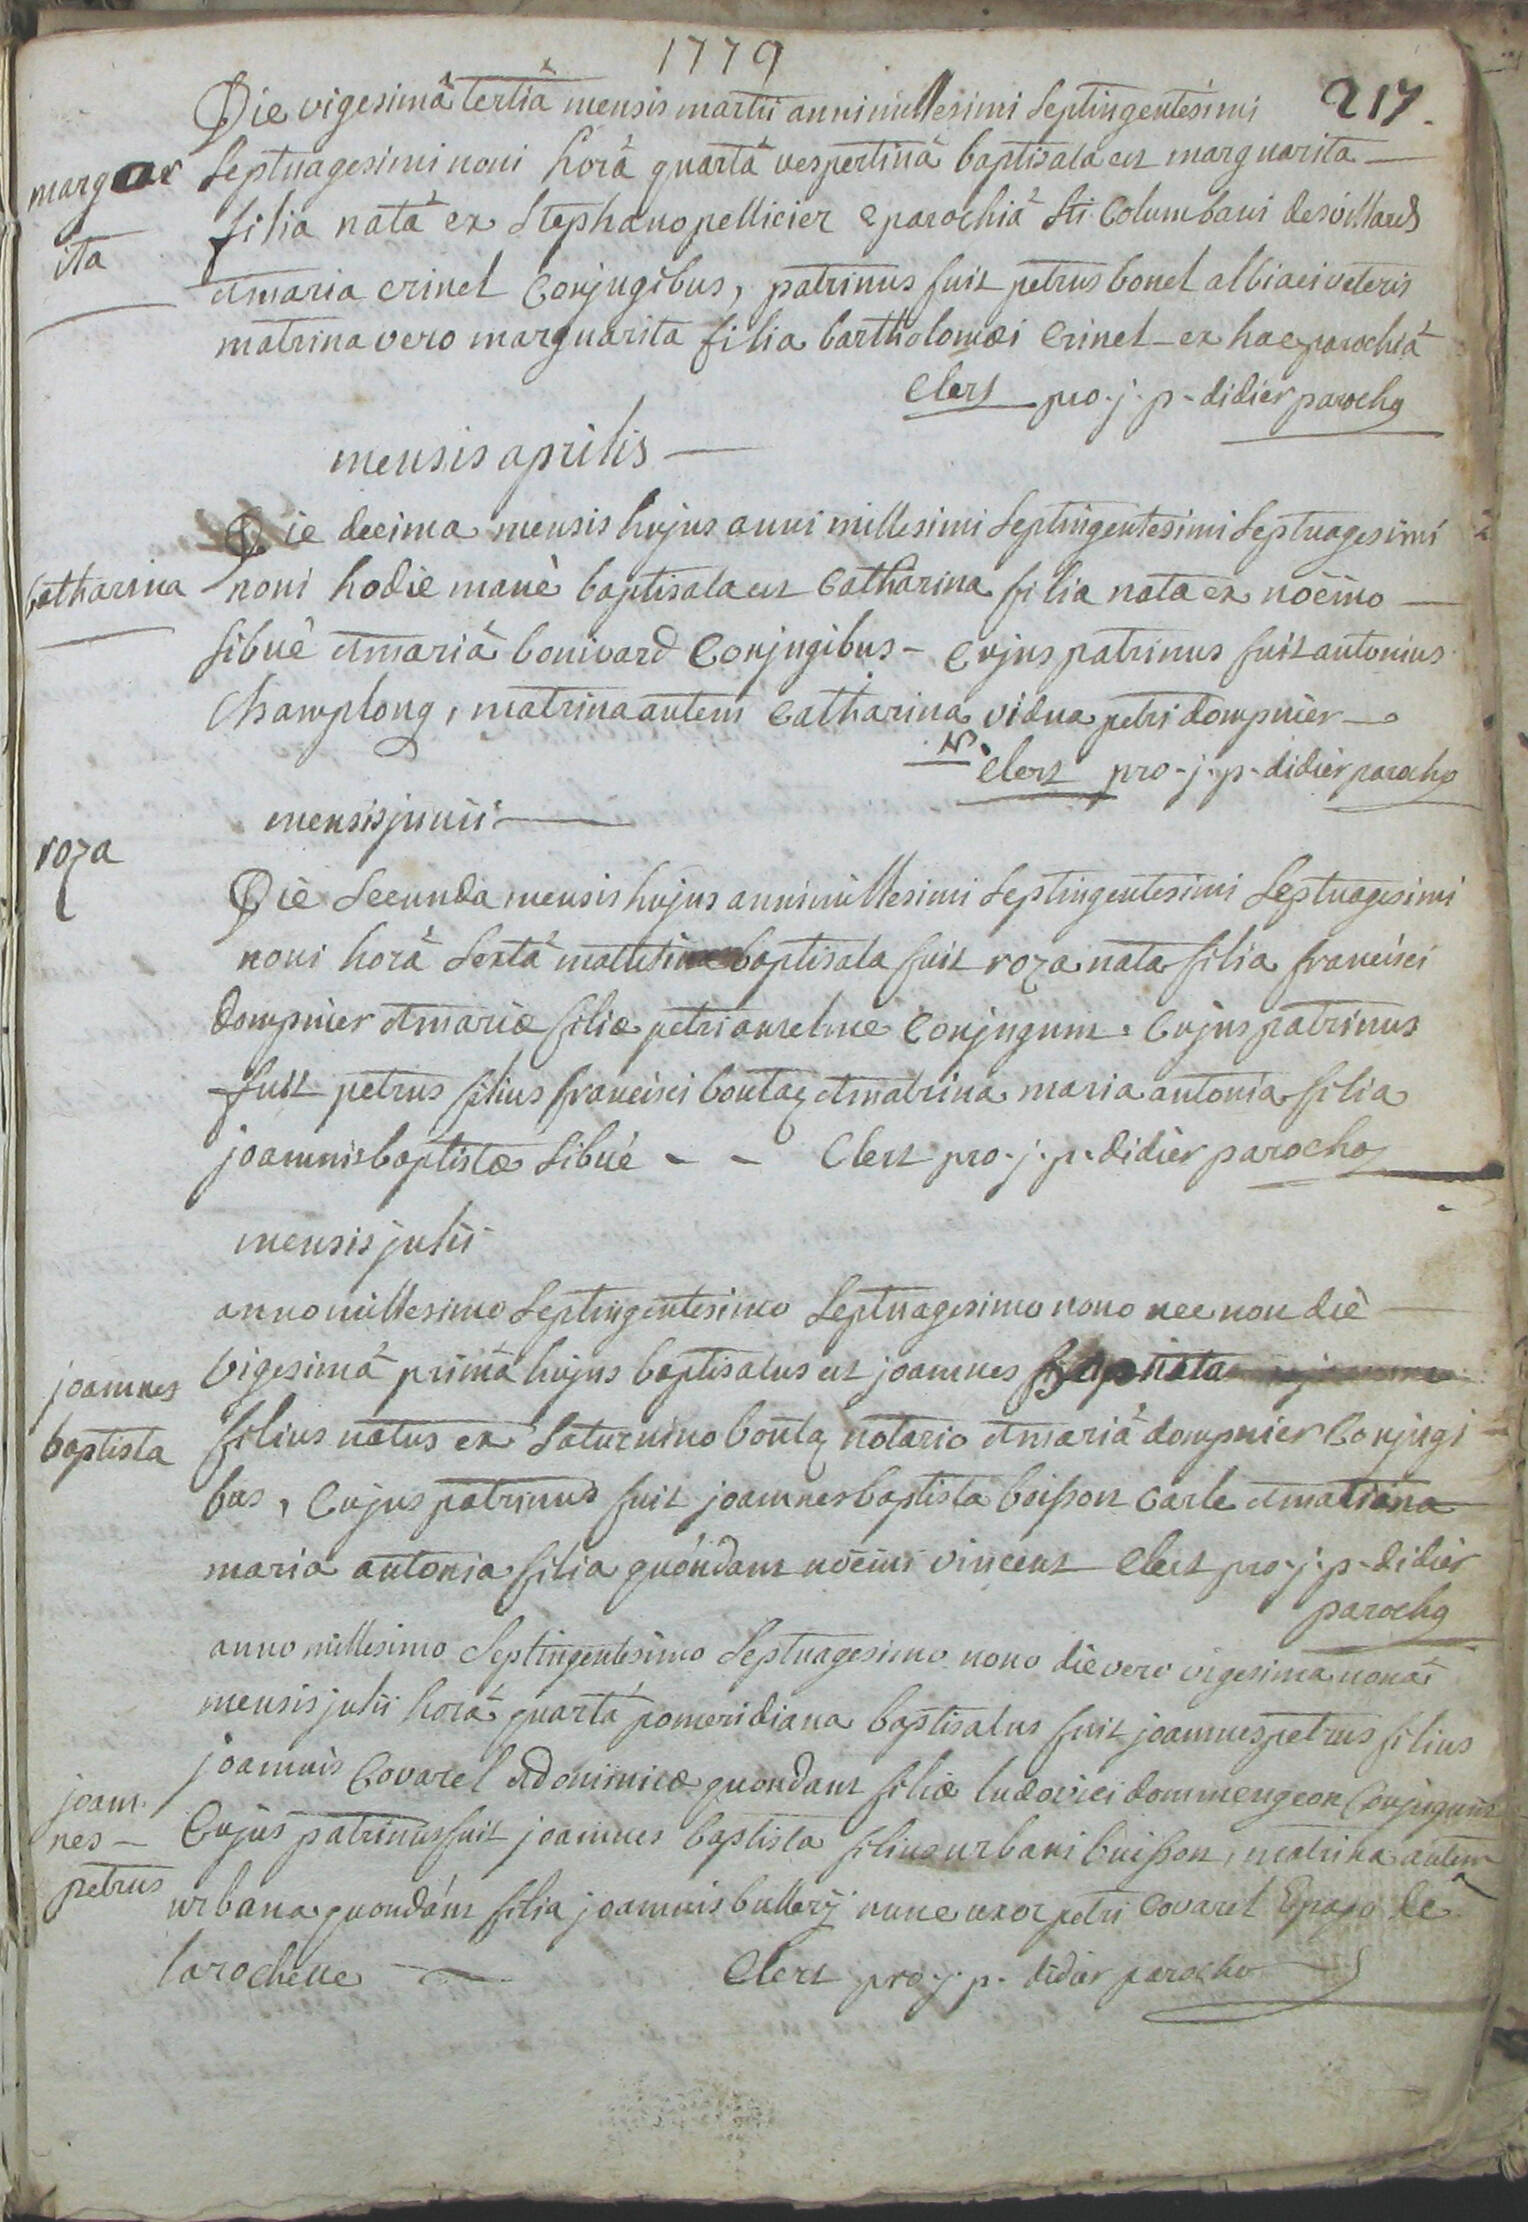 1779
217.
Die vigesimâ tertiâ mensis martii anni millesimi septingentesimi
marguar
ita
septuagesimi noni horâ quartâ vespertinâ baptisata est marguarita
filia nata ex stephano pellicier e parochiâ sti Columbani desvillards
et maria crinel Conjugibus, patrinus fuit petrus bonel albiaci veteris
matrina vero marguarita filia bartholomæi Crinel ex hac parochiâ
Clert pro j. p. didier parocho
mensis aprilis
Catharina
Die decima mensis hujus anni millesimi septingentesimi septuagesimi
noni hodie manè baptisata est Catharina filia nata ex noëmo
sibuè et mariâ bonivard Conjugibus - Cujus patrinus fuit antonius
Champlong, matrina autem Catharina vidua petri dompnier
N. Clert pro - j. p. didier parocho
mensis junii
roza
Die secunda mensis hujus anni millesimi septingentesimi septuagesimi
noni horâ sextâ matutina baptisata fuit roza nata filia francisci
dompnier et mariæ filiæ petri anselme Conjugum. Cujus patrinus
fuit petrus filius francisci boutaz et matrina maria antonia filia
joannis baptistæ sibuè - - Clert pro. j. p. didier parocho
mensis julii
anno millesimo septingentesimo septuagesimo nono nec non diè
joannes
baptista
vigesimâ primâ hujus baptisatus est joannes
filius natus ex saturnino boutaz notario et mariâ dompnier Conjugi
bus, Cujus patrinus fuit joannes baptista boisson Carle et matrina
maria antonia filia quondam noëmi vincent Clert pro. j. p. didier
parocho
anno millesimo septingentesimo septuagesimo nono die vero vigesima nonâ
mensis julii horâ quartâ pomeridiana baptisatus fuit joannes petrus filius
joannis Covarel et dominicæ quondam filiæ ludovici dommengeon Conjugum
joan-
nes -
petrus
Cujus patrinus fuit joannes baptista filius urbani buisson, matrina autem
urbana quondàm filia joannis nunc uxor petri Covarel de
larochette Clert pro. j. p. didier parocho